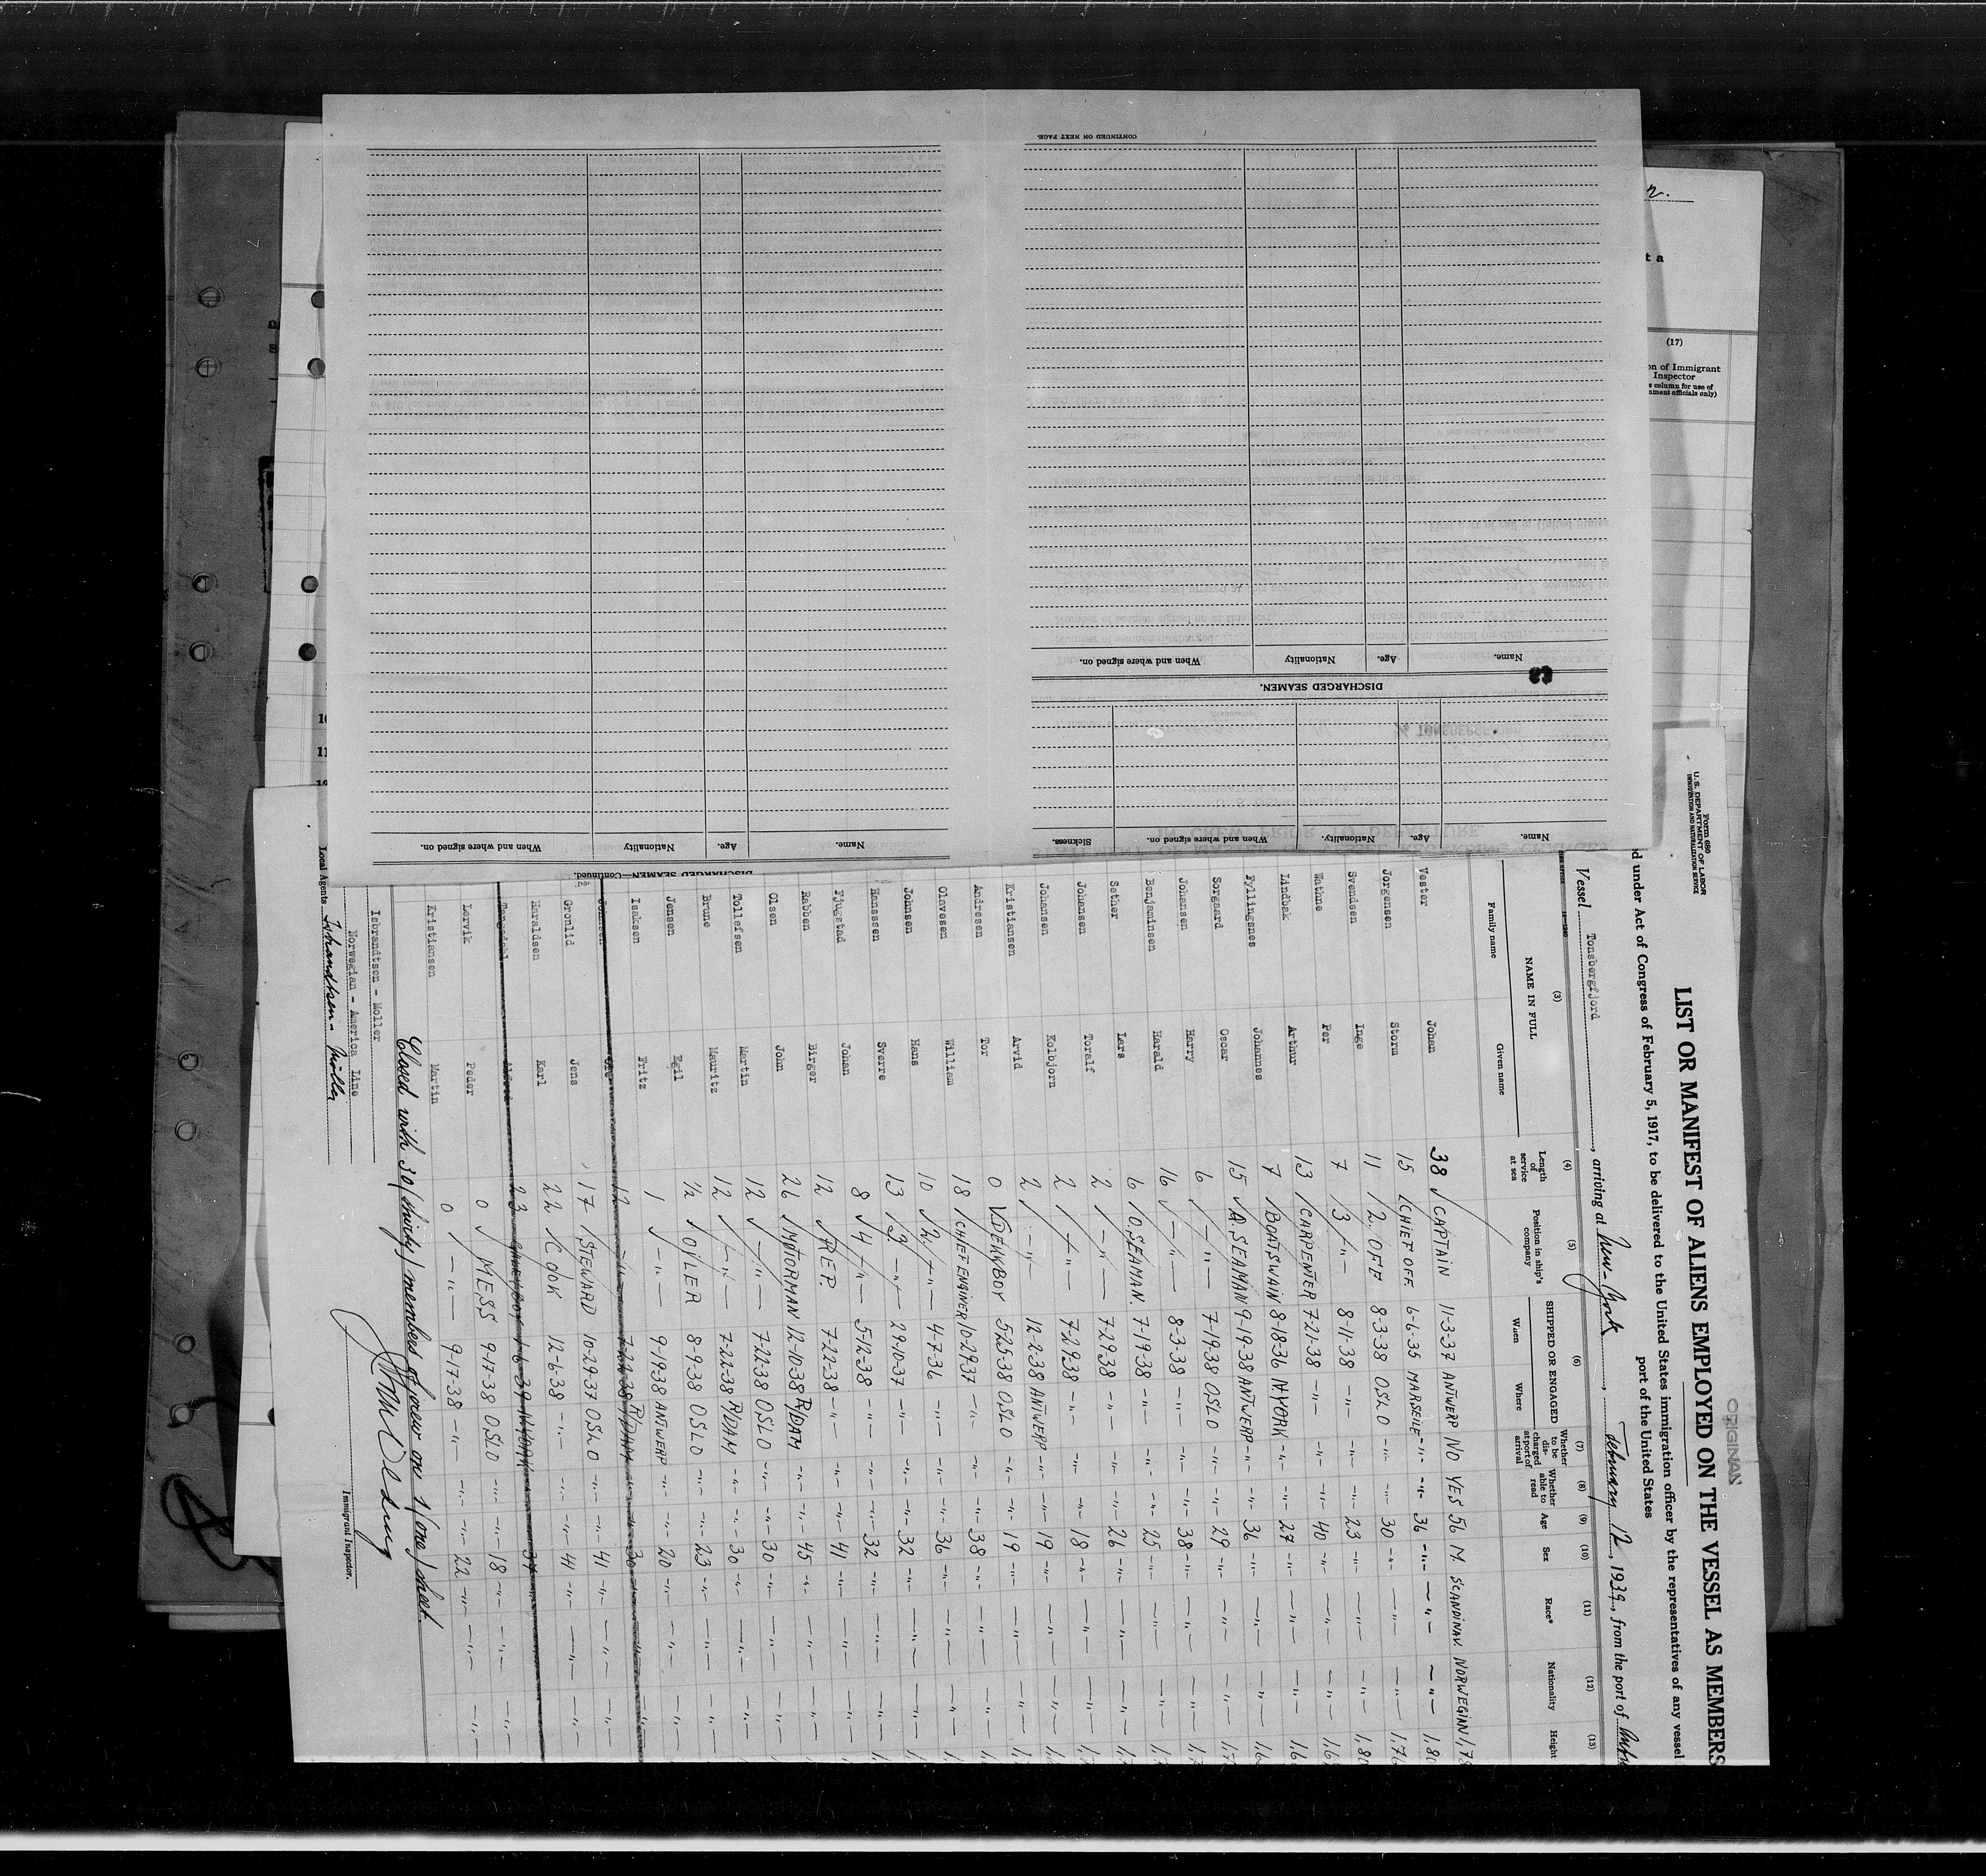 ORIGINAL
Form 680
U. S. DEPARTMENT OF LABOR
IMMIGRATION AND NATURALIZATION SERVICE
LIST OR MANIFEST OF ALIENS EMPLOYED ON THE VESSEL AS MEMBERS
d under Act of Congress of February 5, 1917, to be delivered to the United States immigration officer by the representatives of any vessel
port of the United States
Vessel Tonsbergfjord, arriving at New-York, February 12, 1939, from the port of
(3) (4) (5) (6) (7) (8) (9) (10) (11) (12) (13)
NAME IN FULL Length of service at sea Position in ship's company SHIPPED OR ENGAGED Whether to be discharged at port of arrival Whether able to read Age Sex Race* Nationality Height
Family name Given name When Where
Vester Johan 38 CAPTAIN 11-3-37 ANTWERP NO YES 56 M. SCANDINAV. NORWEGIAN 1,78
Jorgensen Storm 15 CHIEF OFF. 6-6-35 MARSEILE -"- -"- 36 -"- -"- -"- 1,80
Svendsen Inge 11 2. OFF 8-3-38 OSLO -"- -"- 30 -"- -"- -"- 1,76
Wathne Per 7 3 -"- 8-11-38 -"- -"- -"- 23 -"- -"- -"- 1,80
Lindbak Arthur 13 CARPENTER 7-21-38 -"- -"- -"- 40 -"- -"- -"- 1,6
Fyllingsnes Johannes 7 BOATSWAIN 8-8-36 N.YORK -"- -"- 27 -"- -"- -"- 1,6
Sorgaard Oscar 15 A. SEAMAN 9-19-38 ANTWERP -"- -"- 36 -"- -"- -"- 1,6
Johansen Harry 6 -"- 7-19-38 OSLO -"- -"- 29 -"- -"- -"- 1,7
Benjaminsen Harald 16 -"- 8-3-38 -"- -"- -"- 38 -"- -"- -"- 1,7
Sether Lars 6 O. SEAMAN. 7-19-38 -"- -"- -"- 25 -"- -"- -"- 1,7
Johansen Toralf 2 -"- 7-29-38 -"- -"- -"- 26 -"- -"- -"- 1,7
Johansen Kolbjorn 2 -"- 7-29-38 -"- -"- -"- 18 -"- -"- -"- 1,
Kristiansen Arvid 2 -"- 12-2-38 ANTWERP -"- -"- 19 -"- -"- -"- 1,
Andresen Tor 0 DEKKBOY 5-25-38 OSLO -"- -"- 19 -"- -"- -"- 1,
Olavesen William 18 CHIEF ENGINER 10-29-37 -"- -"- -"- 38 -"- -"- -"- 1,
Johnsen Hans 10 2. -"- 4-7-36 -"- -"- -"- 36 -"- -"- -"- 1,
Hanssen Sverre 13 3. -"- 29-10-37 -"- -"- -"- 32 -"- -"- -"-
Fjugstad Johan 8 4 -"- 5-12-38 -"- -"- -"- 32 -"- -"- -"-
Rabben Birger 12 REP. 7-22-38 -"- -"- -"- 41 -"- -"- -"-
Olsen John 26 MOTORMAN 12-10-38 R/DAM -"- -"- 45 -"- -"- -"-
Tollefsen Martin 12 -"- 7-22-38 OSLO -"- -"- 30 -"- -"- -"-
Brune Mauritz 12 -"- 7-22-38 R/DAM -"- -"- 30 -"- -"- -"-
Jensen Egil 1/2 OILER 8-9-38 OSLO -"- -"- 23 -"- -"- -"-
Isaksen Fritz 1 -"- 9-19-38 ANTWERP -"- -"- 20 -"- -"- -"-
12 -"- 7-22-38 R/DAM -"- -"- 30 -"- -"- -"-
Gronlid Jens 17 STEWARD 10-29-37 OSLO -"- -"- 41 -"- -"- -"-
Haraldsen Karl 22 COOK 12-6-38 -"- -"- -"- 41 -"- -"- -"-
23 1-6-39 N.YORK 34
Lervik Peder 0 MESS 9-17-38 OSLO -"- -"- 18 -"- -"- -"-
Kristiansen Martin 0 -"- 9-17-38 -"- -"- -"- 22 -"- -"- -"-
Closed with 30 (thirty) members of crew on 1 (one) sheet.
Isbrandtsen - Moller
Norwegian - America Line
Local Agents Isbrandtsen - Möller
Immigrant Inspector.
DISCHARGED SEAMEN—Continued.
Name. Age. Nationality When and where signed on.
Name. Age. Nationality. When and where signed on. Sickness.
DISCHARGED SEAMEN.
Name. Age. Nationality When and where signed on.
CONTINUED ON NEXT PAGE.
(17)
on of Immigrant
Inspector
s column for use of
nment officials only)
10
11